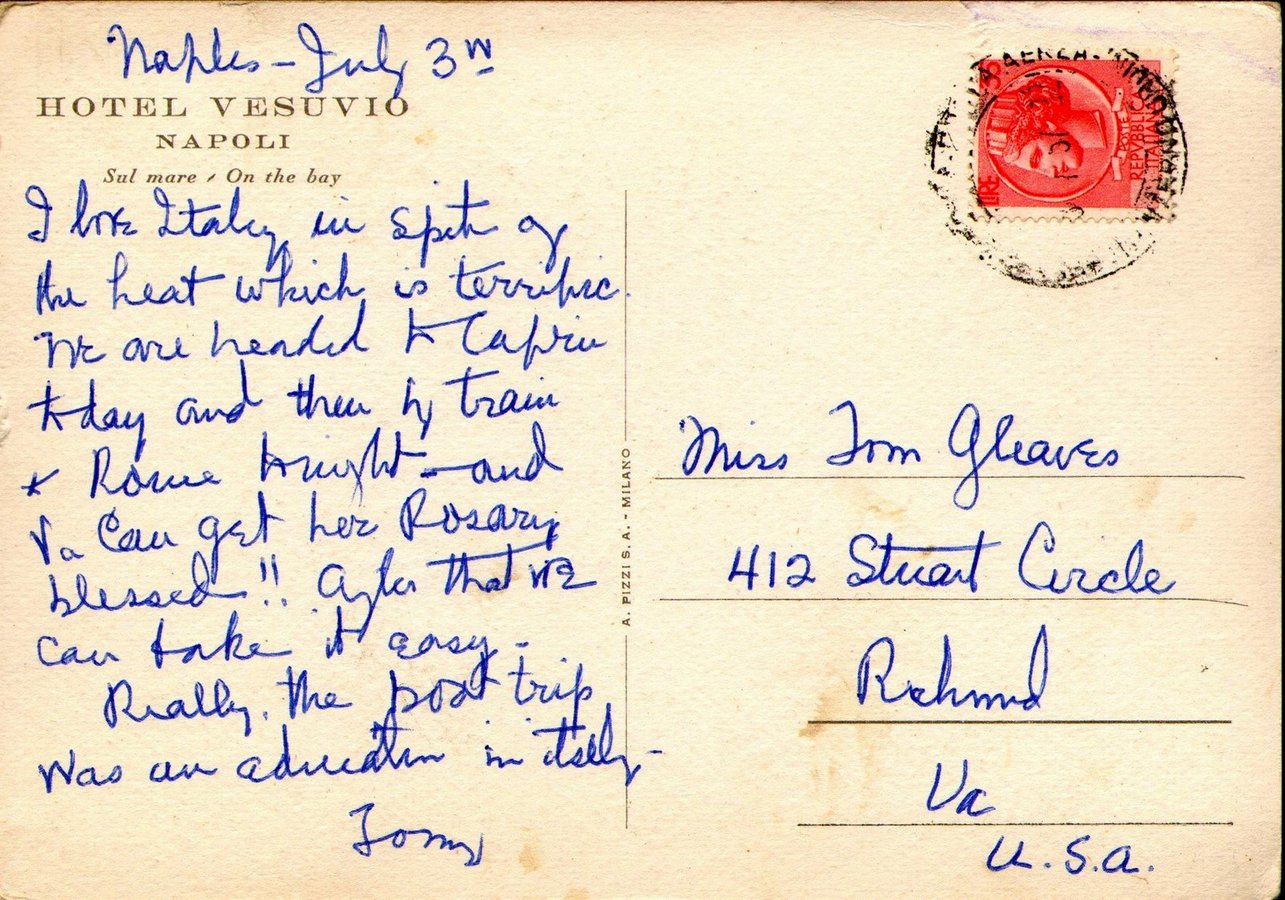 Naples - July 3rd
HOTEL VESUVIO
NAPOLI
Sul mare - On the bay
I love Italy in spite of
the heat which is terrific.
We are headed to Capri
today and then by train
to Rome tonight - and
Va can get her Rosary
blessed!! After that we
can take it easy -
Really, the boat trip
was an education in itself -
A. PIZZI S. A. - MILANO
LIRE
POSTE
REPVBBLICA
ITALIANA
Miss Tom Gleaves
412 Stuart Circle
Richmond
Va
U.S.A.